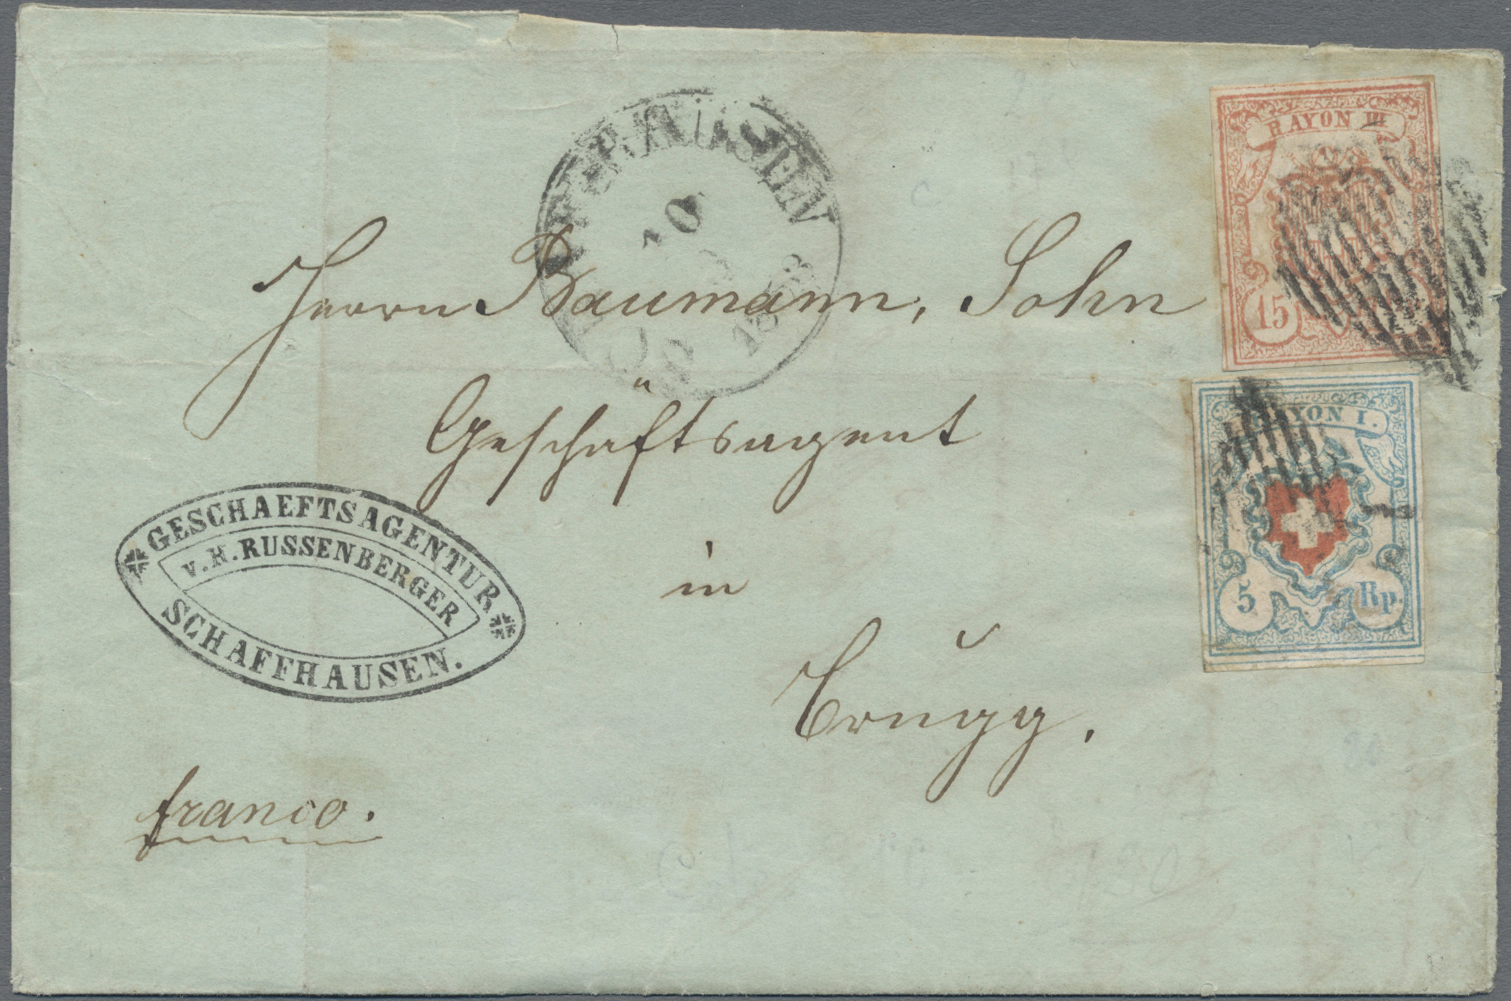 RAYON III
15
10
1853
Herrn Baumann, Sohn
Geschäftsagent
in
Brugg.
RAYON I.
5 Rp.
GESCHAEFTSAGENTUR
v. H. RUSSENBERGER
SCHAFFHAUSEN.
franco.